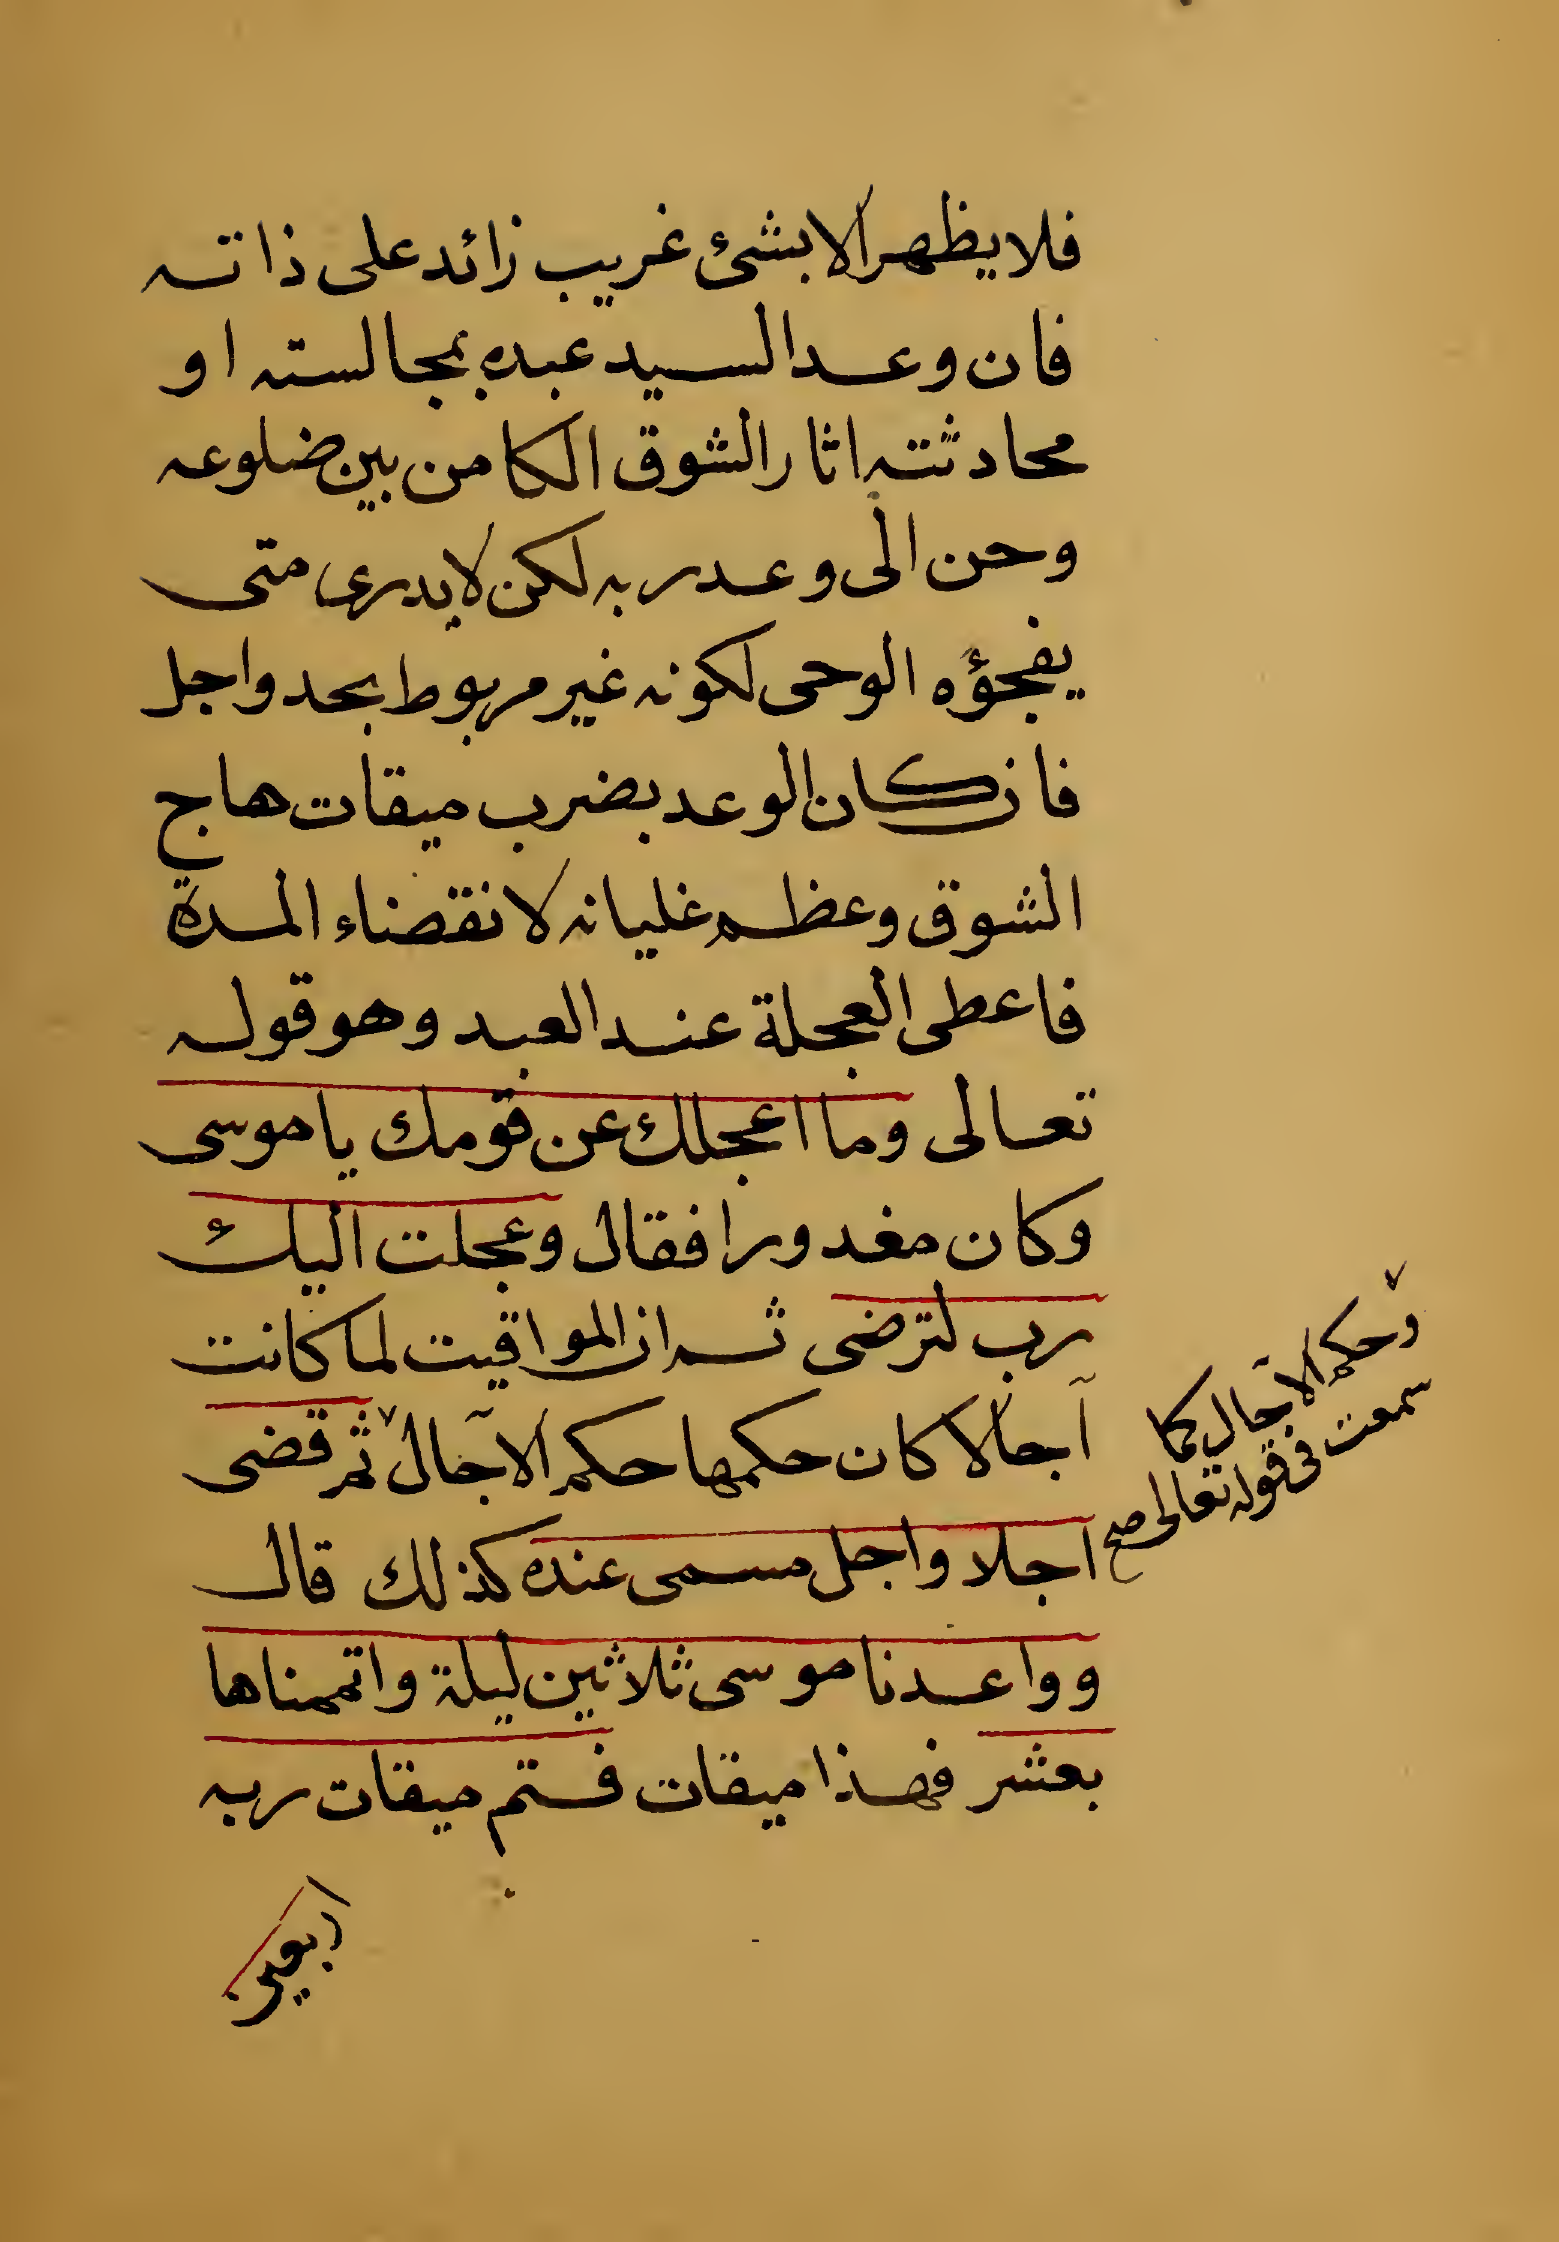 فلا يظهر الا بشئ غريب زائد على ذاته
فان وعد السيد عبده بمجالسته او
محادثته اثار الشوق الكامن بين ضلوعه
وحن الى وعد ربه لكن لا يدرى متى
يفجؤه الوحى لكونه غير مربوط بحد واجل
فان كان الوعد بضرب ميقات هاج
الشوق وعظم غليانه لانقضاء المدة
فاعطى العجلة عند العبد وهو قوله
تعالى وما اعجلك عن قومك ياموسى
وكان مغدورا فقال وعجلت اليك
رب لترضى ثم ان المواقيت لما كانت
آجالا كان حكمها حكم الآجال ثم قضى
وحكم الآجال كما
سمعت فى قوله تعالى صح
اجلا واجل مسمى عنده كذلك قال
وواعدنا موسى ثلاثين ليلة واتممناها
بعشر فهذا ميقات فتم ميقات ربه
اربعين